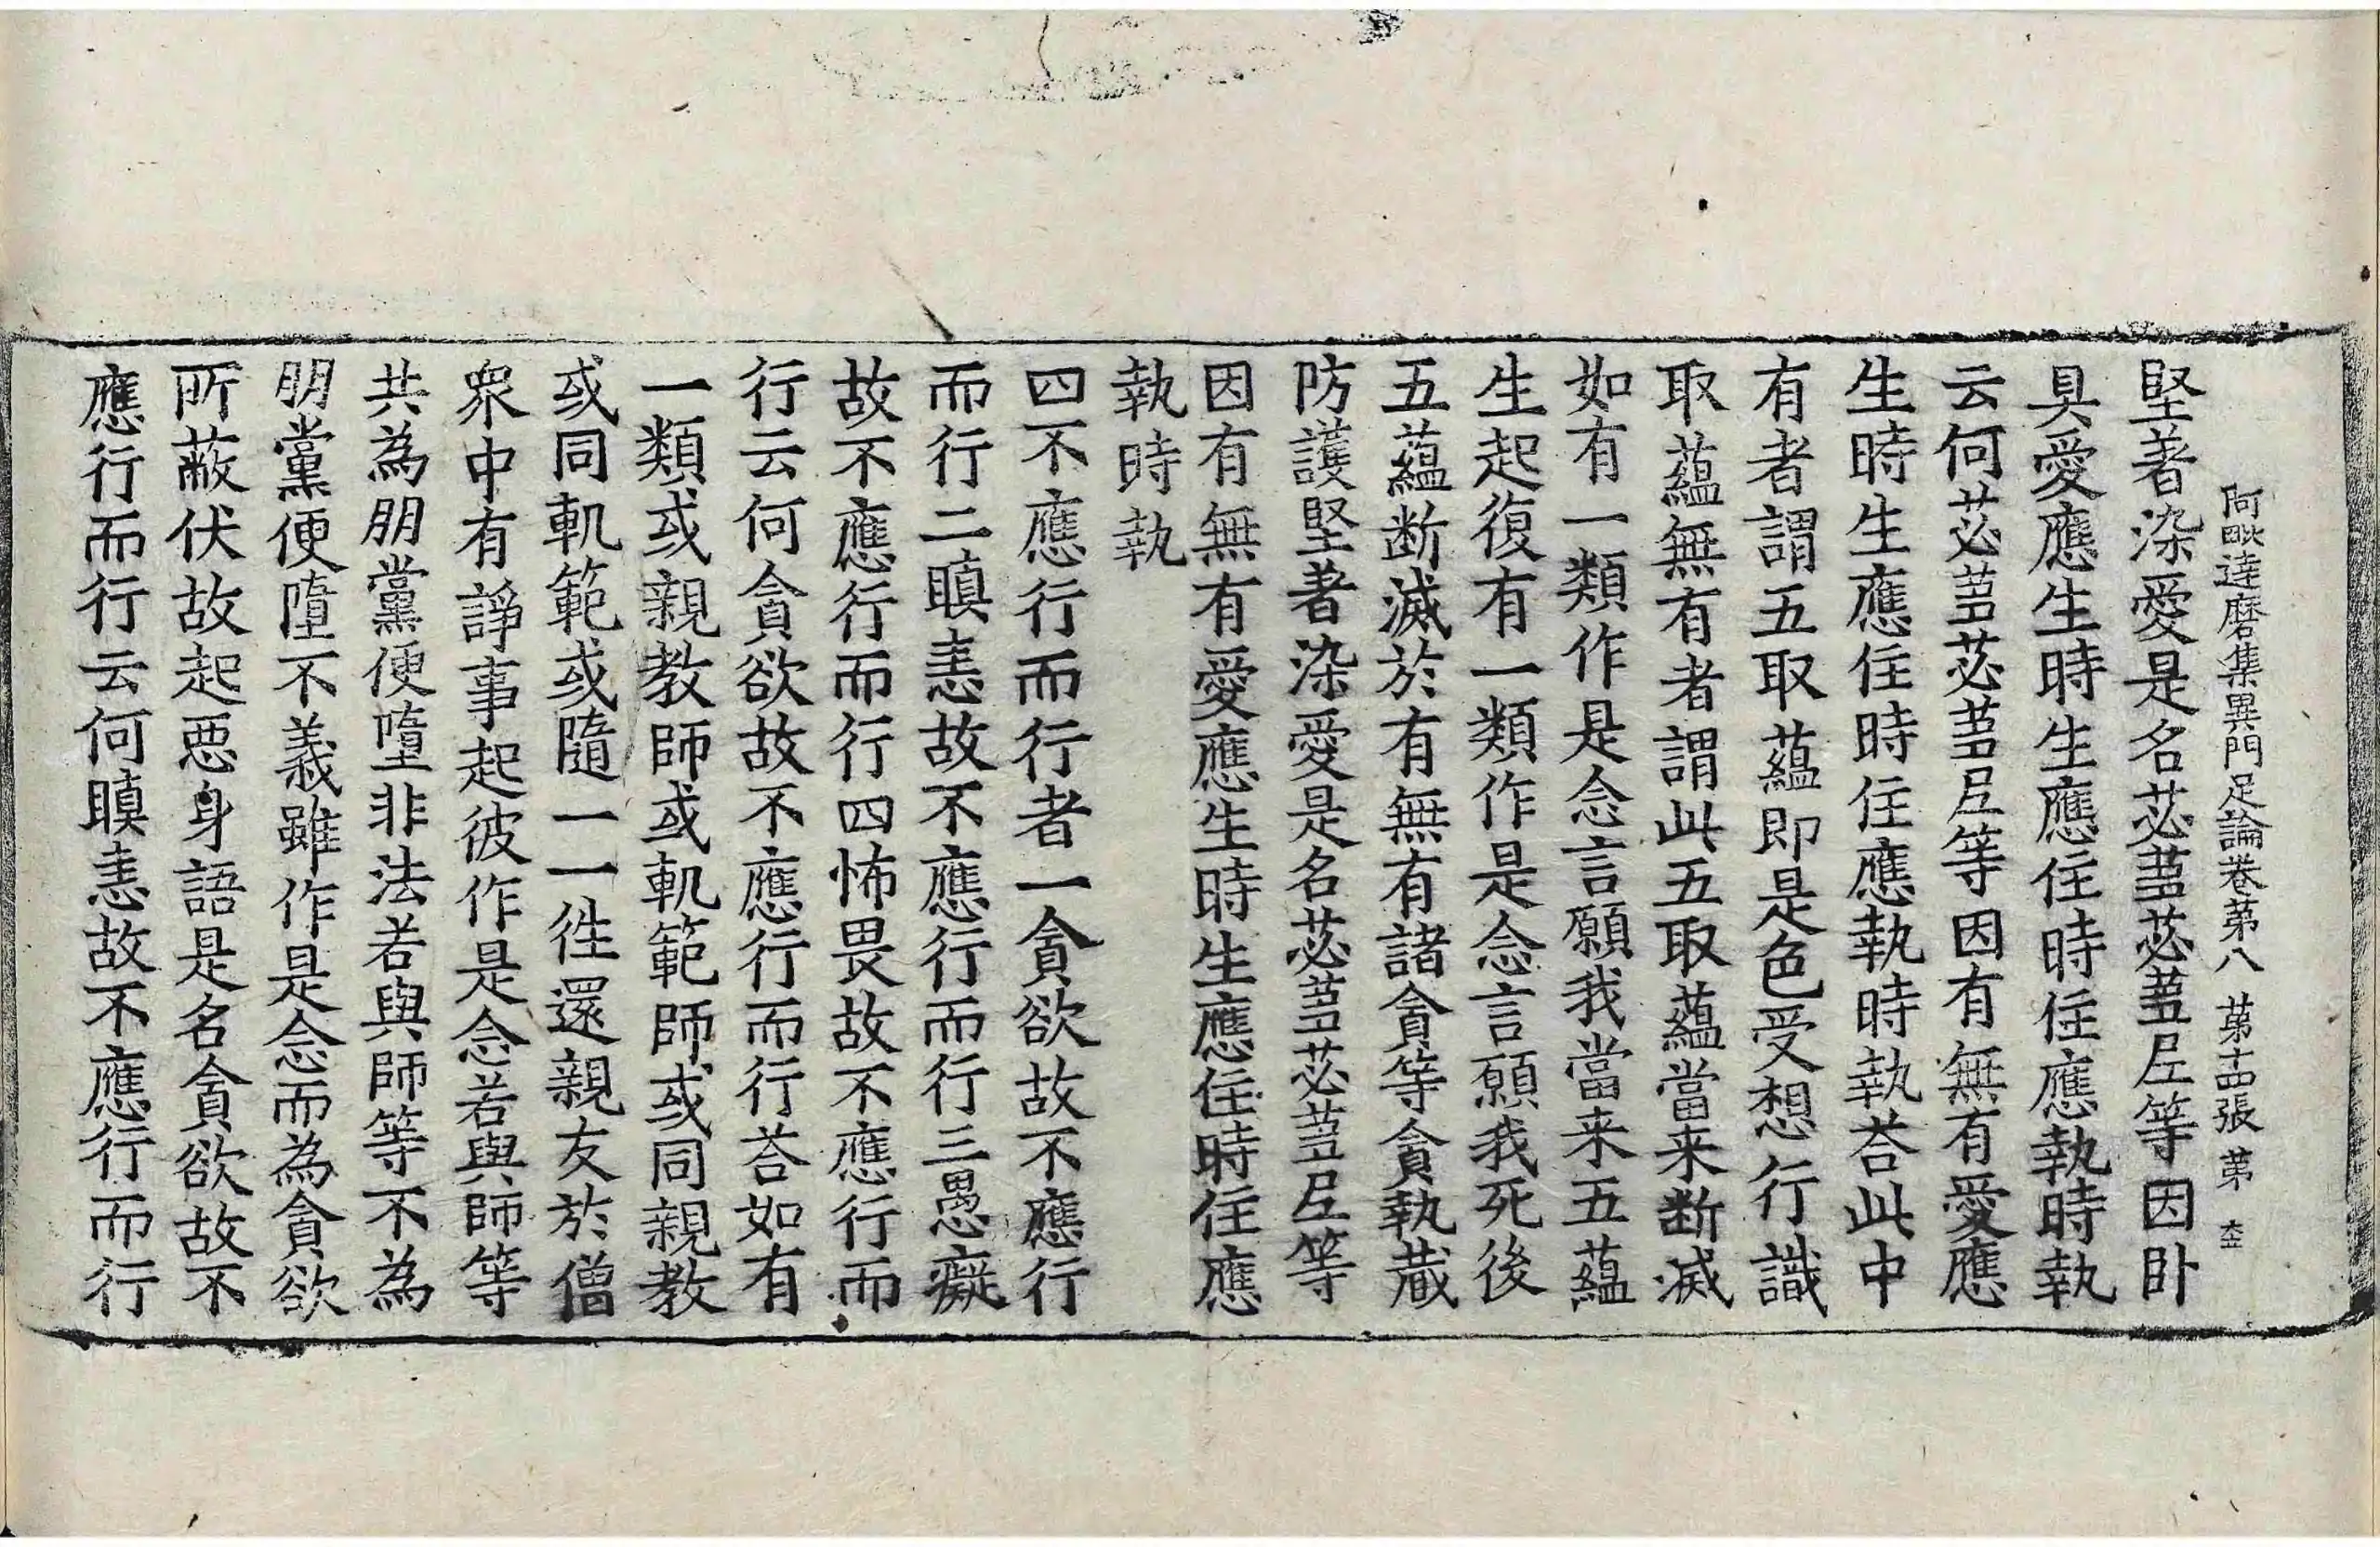 阿毗達磨集異門足論卷第八 第十四張 第
堅著染愛是名苾蒭苾蒭尼等因卧
具愛應生時生應住時住應執時執
云何苾蒭苾蒭尼等因有無有愛應
生時生應住時住應執時執荅此中
有者謂五取蘊即是色受想行識
取蘊無有者謂此五取蘊當来断滅
如有一類作是念言願我當来五蘊
生起復有一類作是念言願我死後
五蘊断滅於有無有諸貪等貪執蔵
防護堅著染愛是名苾蒭苾蒭尼等
因有無有愛應生時生應住時住應
執時執
四不應行而行者一貪欲故不應行
而行二瞋恚故不應行而行三愚癡
故不應行而行四怖畏故不應行而
行云何貪欲故不應行而行荅如有
一類或親教師或軌範師或同親教
或同軌範或隨一一徃還親友於僧
衆中有諍事起彼作是念若與師等
共為朋黨便墮非法若與師等不為
朋黨便墮不義雖作是念而為貪欲
所蔽伏故起惡身語是名貪欲故不
應行而行云何瞋恚故不應行而行